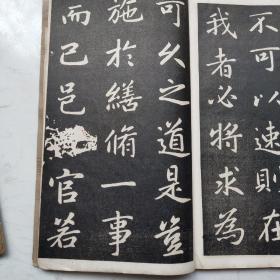 不可以速則在
我者必將求為
可久之道是豈
施於繕脩一事
而已邑官若